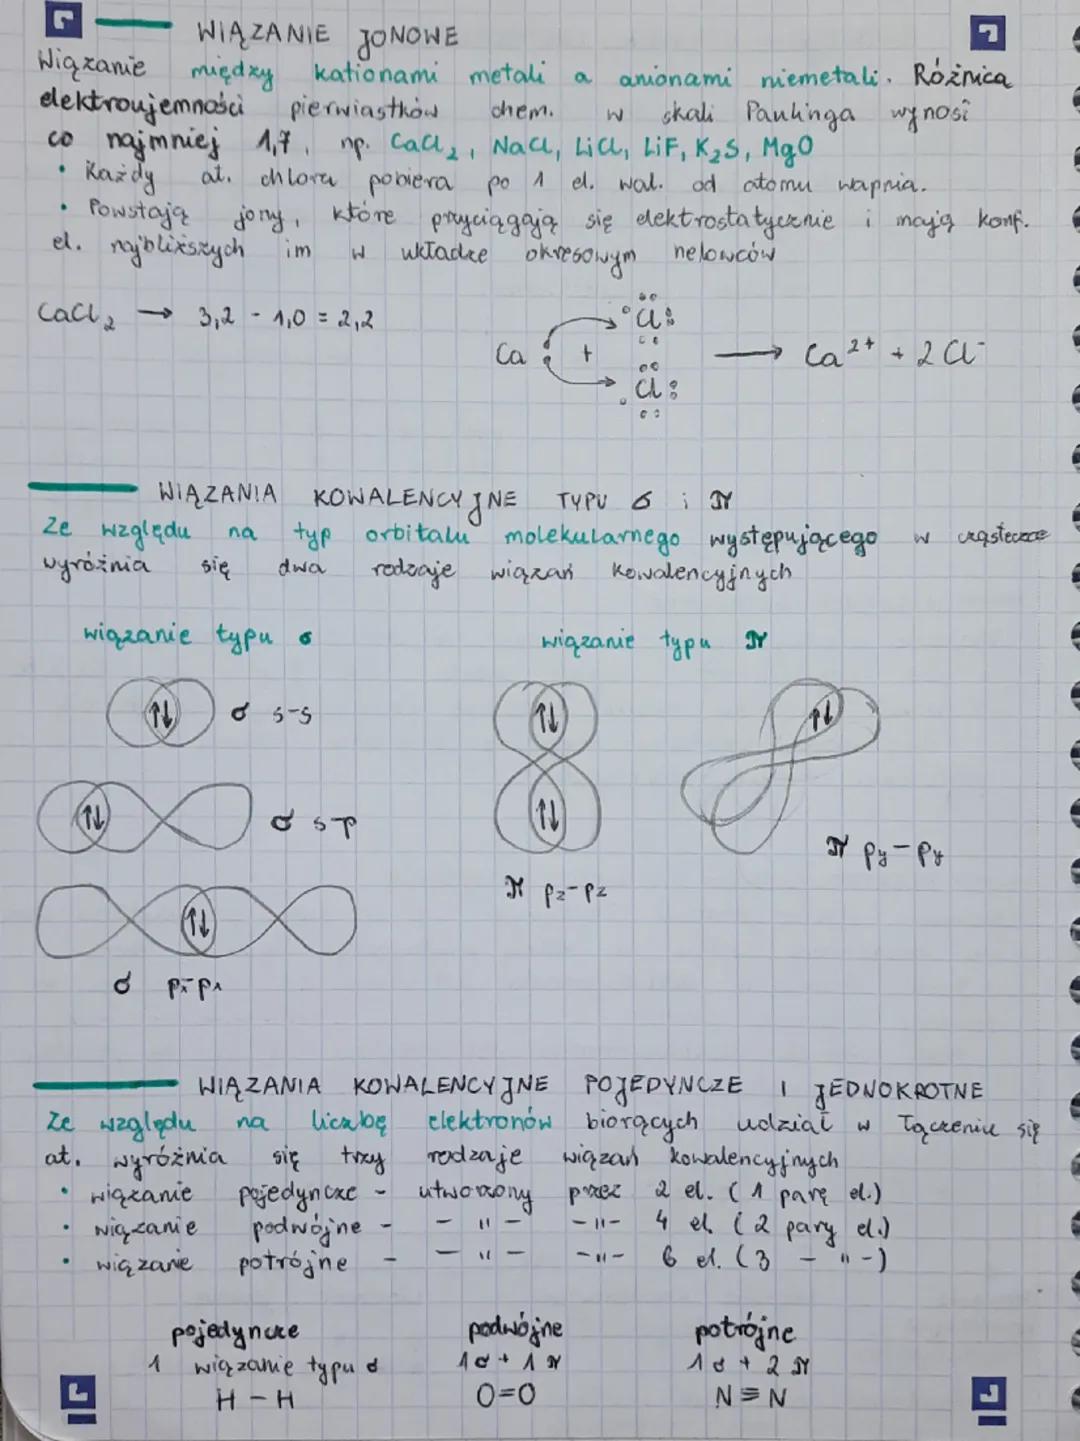 WIĄZANIE JONOWE
Wiązanie między kationami metali a anionami niemetali. Różnica
elektroujemności pierwiastków chem. w skali Paulinga wynosi
co najmniej 1,7, np. CaCl₂, NaCl, LiCl, LiF, K₂S, MgO
• Każdy at. chloru pobiera po 1 el. wal. od atomu wapnia.
• Powstają jony, które przyciągają się elektrostatycznie i mają konf.
el. najbliższych im w układzie okresowym helowców
CaCl₂ → 3,2 - 1,0 = 2,2
Cl
Ca + → Ca²⁺ + 2Cl⁻
Cl
WIĄZANIA KOWALENCYJNE TYPU σ i π
Ze względu na typ orbitalu molekularnego występującego w cząsteczce
wyróżnia się dwa rodzaje wiązań kowalencyjnych
wiązanie typu σ wiązanie typu π
↑↓ σ s-s ↑↓ ↑↓
↑↓ σ s-p ↑↓
π py-py
π pz-pz
↑↓
σ px-px
WIĄZANIA KOWALENCYJNE POJEDYNCZE I JEDNOKROTNE
Ze względu na liczbę elektronów biorących udział w łączeniu się
at. wyróżnia się trzy rodzaje wiązań kowalencyjnych
• wiązanie pojedyncze - utworzony przez 2 el. (1 parę el.)
• wiązanie podwójne - -"- -"- 4 el. (2 pary el.)
• wiązanie potrójne - -"- -"- 6 el. (3 -"-)
pojedyncze podwójne potrójne
1 wiązanie typu σ 1σ + 1π 1σ + 2π
H-H O=O N≡N